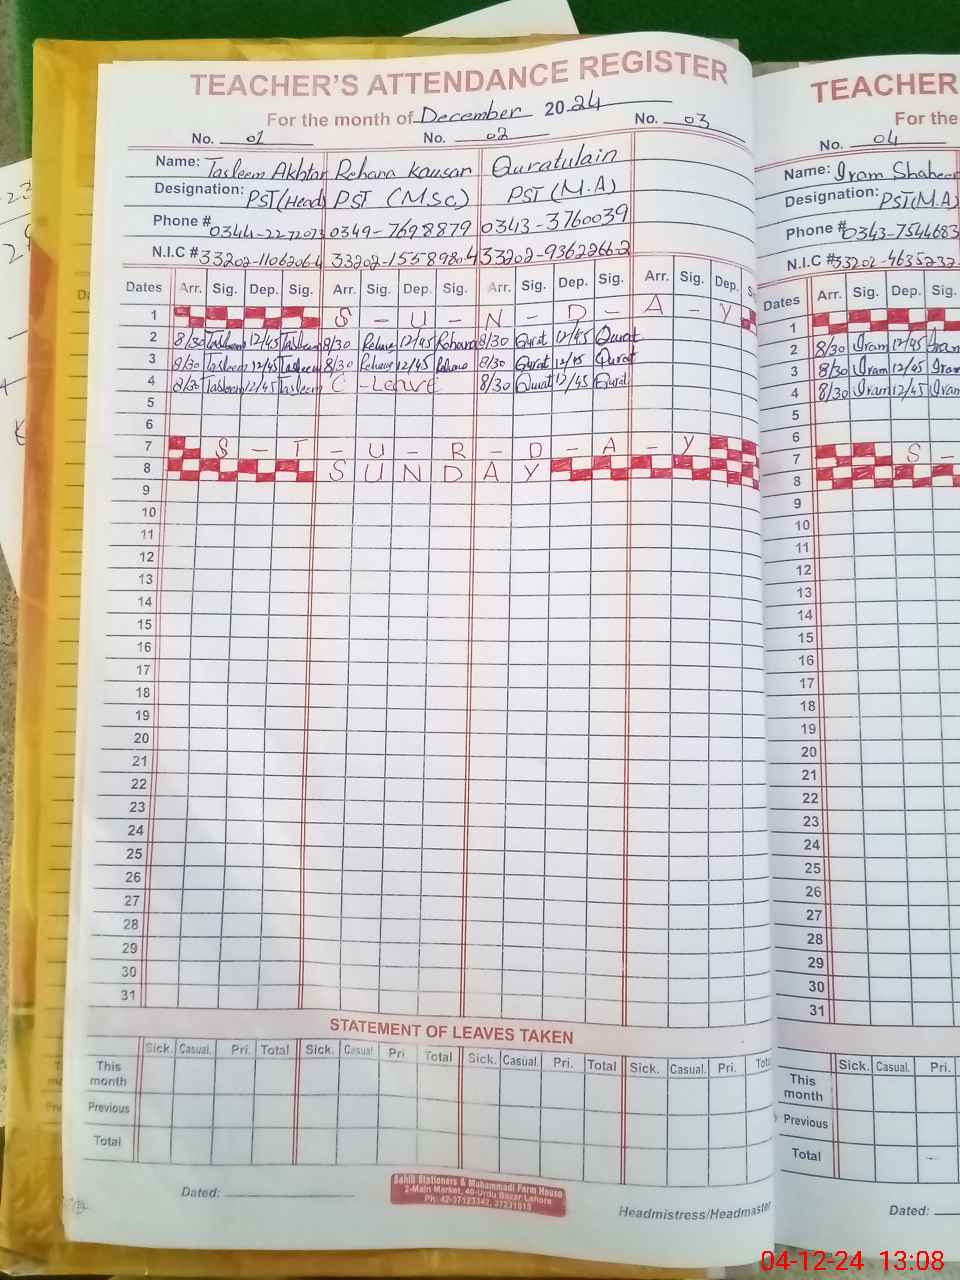 TEACHER'S ATTENDANCE REGISTER
For the month of December 2024
No. 01 No. 02 No. 03
Name: Tasleem Akhtar Rehana Kausar Quratulain
Designation: PST(Head) PST (M.Sc) PST (M.A)
Phone # 0349-7698879 0343-3760039
N.I.C #
Dates Arr. Sig. Dep. Sig. Arr. Sig. Dep. Sig. Arr. Sig. Dep. Sig. Arr. Sig. Dep.
1 S - U - N - D - A - Y
2 8/30 Tasleem 12/45 Tasleem 8/30 Rehana 12/45 Rehana 8/30 Qurat 12/45 Qurat
3 8/30 Tasleem 12/45 Tasleem 8/30 Rehana 12/45 Rehana 8/30 Qurat 12/45 Qurat
4 8/30 Tasleem 12/45 Tasleem C - Leave 8/30 Qurat 12/45 Qurat
5
6
7 S - T - U - R - D - A - Y
8 S U N D A Y
9
10
11
12
13
14
15
16
17
18
19
20
21
22
23
24
25
26
27
28
29
30
31
STATEMENT OF LEAVES TAKEN
Sick. Casual. Pri. Total Sick. Casual. Pri. Total Sick. Casual. Pri. Total Sick. Casual. Pri. Total
This month
Previous
Total
Dated:
Sahil Stationers & Muhammadi Farm House
2-Main Market, 40-Urdu Bazar Lahore
Headmistress/Headmaster
TEACHER
For the
No. 04
Name: Iram Shaheen
Designation: PST(M.A)
Phone # 0343-7544683
N.I.C #
Dates Arr. Sig. Dep. Sig.
1
2 8/30 Iram 12/45 Iram
3 8/30 Iram 12/45 Iram
4 8/30 Iram 12/45 Iram
5
6
7 S -
8
9
10
11
12
13
14
15
16
17
18
19
20
21
22
23
24
25
26
27
28
29
30
31
Sick. Casual. Pri.
This month
Previous
Total
Dated:
04-12-24 13:08